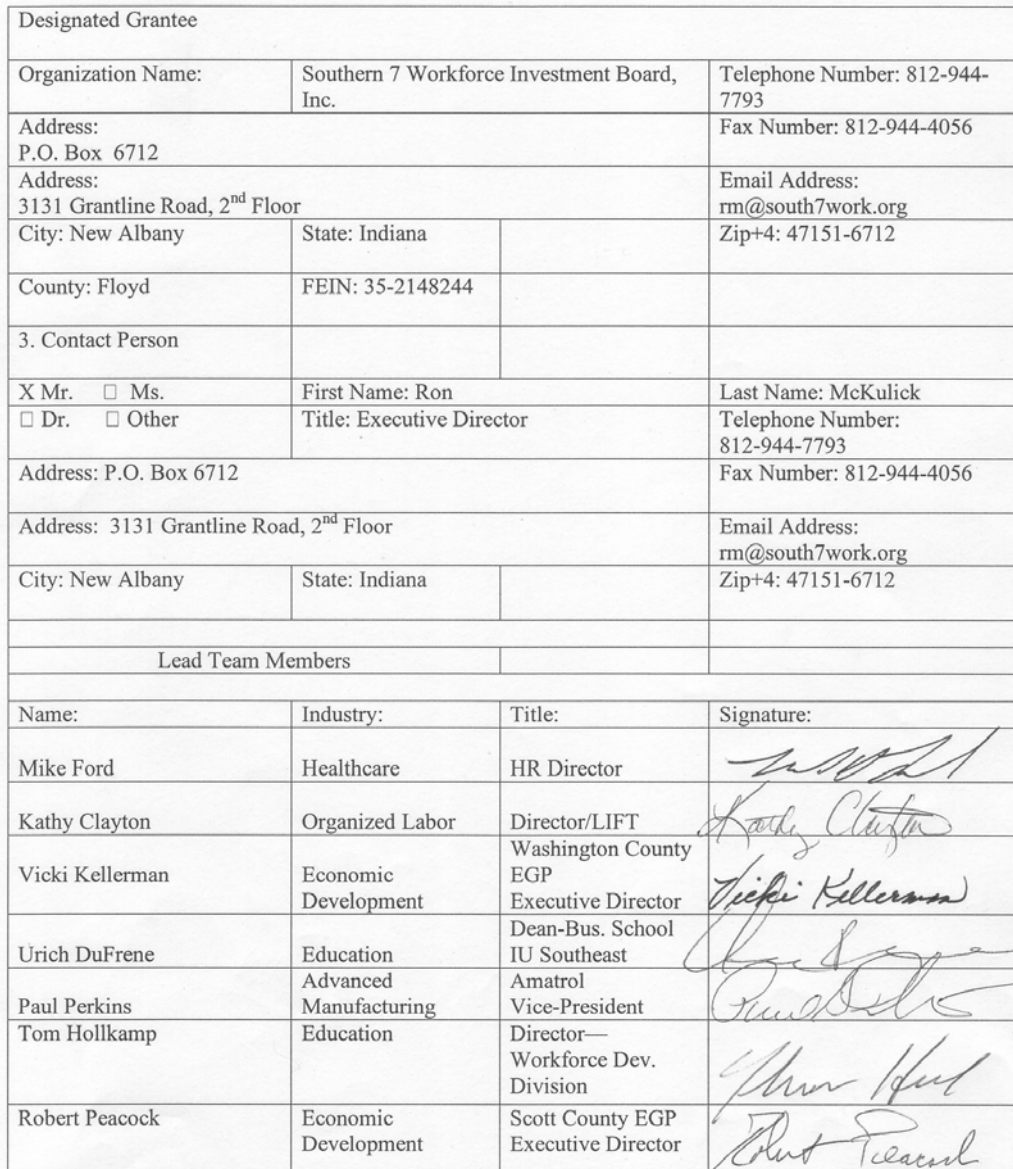 Designated Grantee
Organization Name: Southern 7 Workforce Investment Board, Telephone Number: 812-944-
Inc. 7793
Address: Fax Number: 812-944-4056
P.O. Box 6712
Address: Email Address:
3131 Grantline Road, 2nd Floor rm@south7work.org
City: New Albany State: Indiana Zip+4: 47151-6712
County: Floyd FEIN: 35-2148244
3. Contact Person
X Mr. □ Ms. First Name: Ron Last Name: McKulick
□ Dr. □ Other Title: Executive Director Telephone Number:
812-944-7793
Address: P.O. Box 6712 Fax Number: 812-944-4056
Address: 3131 Grantline Road, 2nd Floor Email Address:
rm@south7work.org
City: New Albany State: Indiana Zip+4: 47151-6712
Lead Team Members
Name: Industry: Title: Signature:
Mike Ford Healthcare HR Director
Kathy Clayton Organized Labor Director/LIFT Kathy Clayton
Washington County
Vicki Kellerman Economic EGP
Development Executive Director Vicki Kellerman
Dean-Bus. School
Urich DuFrene Education IU Southeast
Advanced Amatrol
Paul Perkins Manufacturing Vice-President
Tom Hollkamp Education Director—
Workforce Dev.
Division
Robert Peacock Economic Scott County EGP
Development Executive Director Robert Peacock